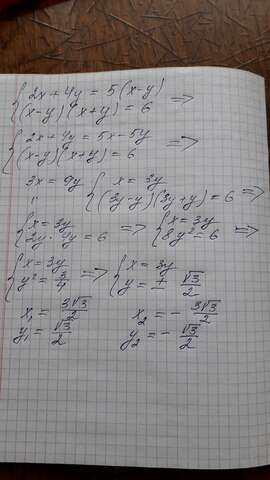 {2x+4y = 5(x-y)
{(x-y)(x+y) = 6 =>
{2x+4y = 5x-5y
{(x-y)(x+y) = 6 =>
3x = 9y {x = 3y
" {(3y-y)(3y+y) = 6 =>
{x = 3y => {x = 3y
{2y · 4y = 6 {8y² = 6 =>
{x = 3y => {x = 3y
{y² = 3/4 {y = ± √3/2
x₁ = 3√3/2 x₂ = - 3√3/2
y₁ = √3/2 y₂ = - √3/2